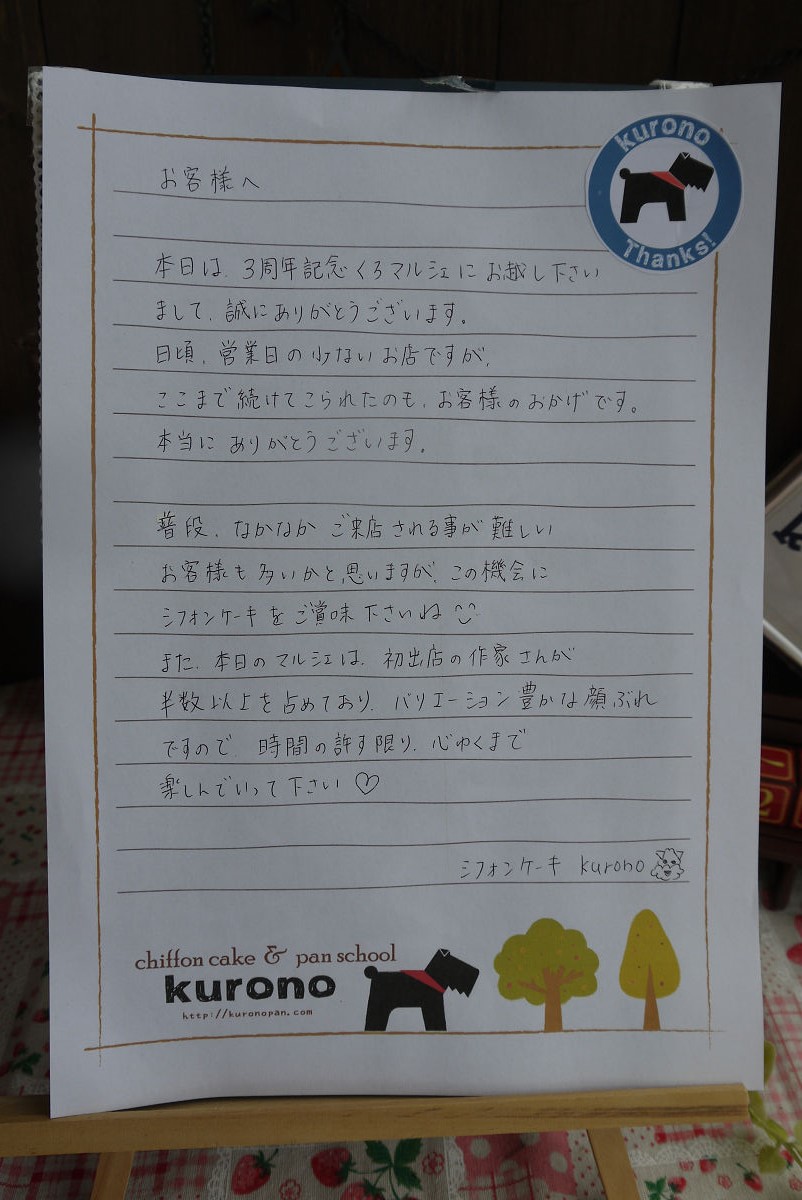 kurono
Thanks!
お客様へ
本日は、3周年記念くろマルシェにお越し下さい
まして、誠にありがとうございます。
日頃、営業日の少ないお店ですが、
ここまで続けてこられたのも、お客様のおかげです。
本当にありがとうございます。
普段、なかなかご来店される事が難しい
お客様も多いかと思いますが、この機会に
シフォンケーキをご賞味下さいね
また、本日のマルシェは、初出店の作家さんが
半数以上を占めており、バリエーション豊かな顔ぶれ
ですので、時間の許す限り、心ゆくまで
楽しんでいって下さい♡
シフォンケーキ kurono
chiffon cake & pan school
kurono
http://kuronopan.com
2